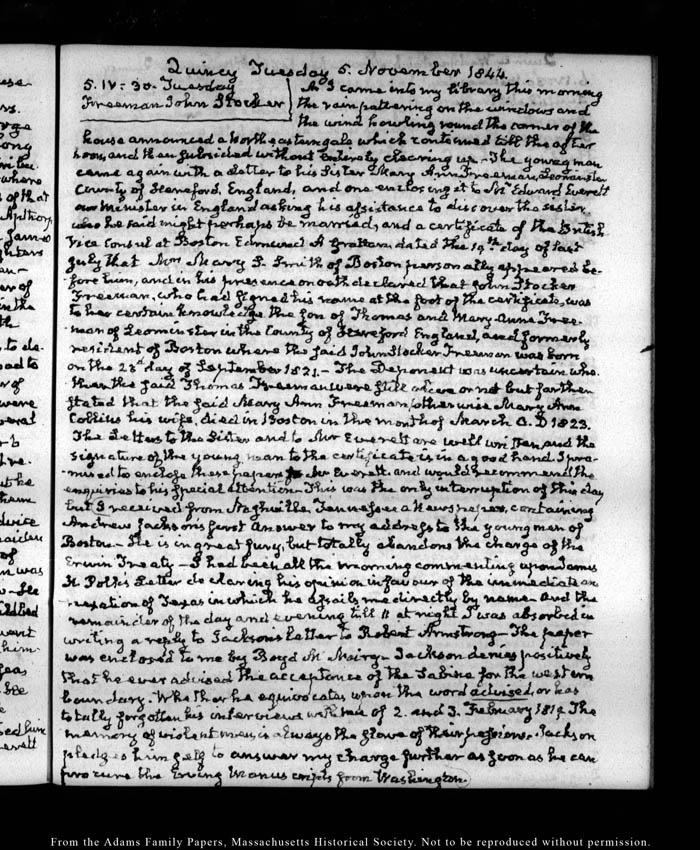 Quincy Tuesday 5. November 1844.
5. IV: 30. Tuesday
Freeman John Stocker
As I came into my library this morning
the rain pattering on the windows and
the wind howling round the corner of the
house announced a North eastern gale which continued till the after
noon, and then subsided without entirely clearing up. The young man
came again with a Letter to his Sister Mary Ann Freeman, Leominster
County of Hereford, England, and one enclosing it to Mr Edward Everett
our Minister in England asking his assistance to discover the sister
who he said might perhaps be married, and a certificate of the British
Vice Consul at Boston Edmund A Grattan dated the 19th day of last
July that Mrs Mary P. Smith of Boston personally appeared be-
fore him, and in his presence on oath declared that John Stocker
Freeman, who had signed his name at the foot of the certificate, was
to her certain knowledge the son of Thomas and Mary Anne Free-
man of Leominster in the County of Hereford England, and formerly
resident of Boston where the said John Stocker Freeman was born
on the 23d day of September 1821. - The Deponent was uncertain whe-
ther the said Thomas Freeman were still alive or not but farther
stated that the said Mary Ann Freeman, otherwise Mary Ann
his wife, died in Boston in the month of March A.D 1823.
The Letters to the Sister and to Mr Everett are well written, and the
signature of the young man to the certificate is in a good hand. I pro-
mised to enclose these papers to Mr Everett and would recommend the
enquiries to his special attention. This was the only interruption of this day
but I received from Nashville, Tennessee a Newspaper, containing
Andrew Jackson's first answer to my address to the young men of
Boston. He is in great fury, but totally abandons the charge of the
Erwin Treaty - I had been all the morning commenting upon James
K Polk's Letter declaring his opinion in favour of the immediate an
nexation of Texas in which he assails me directly by name. And the
remainder of the day and evening till 11 at night I was absorbed in
writing a reply to Jackson's Letter to Robert Armstrong - The paper
was enclosed to me by Boyd - Jackson denies positively
that he ever advised the acceptance of the Sabine for the western
boundary. Whether he equivocates upon the word advised, or has
totally forgotten his interviews with me of 2. and 3. February 1819. The
memory of violent men is always the slave of their passions. Jackson
pledges himself to answer my charge further as soon as he can
procure the Erving Manuscripts from Washington.
From the Adams Family Papers, Massachusetts Historical Society. Not to be reproduced without permission.